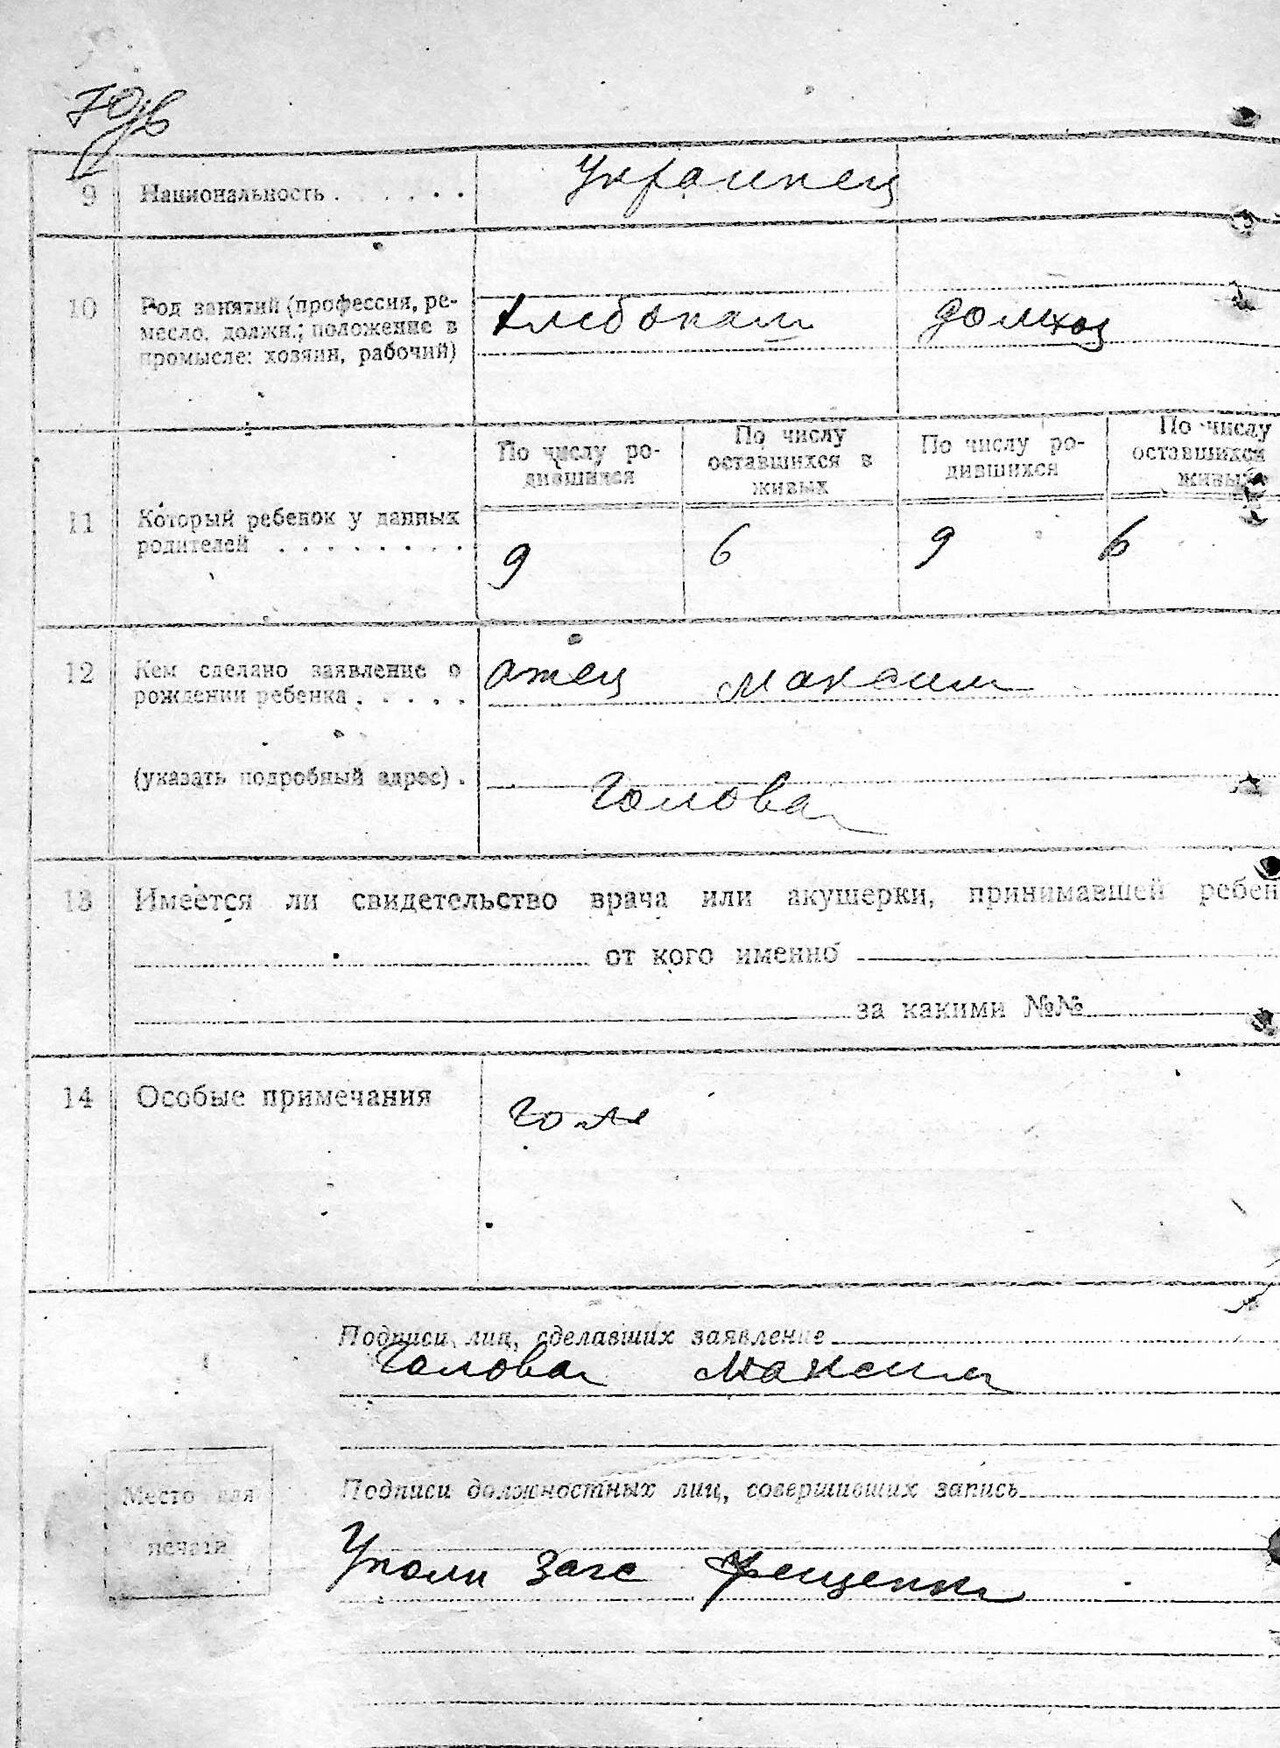 9 Национальность . . . . . . Украинец
10 Род занятий (профессия, ре-
месло, должн.; положение в
промысле: хозяин, рабочий)
хлебопаш домхоз
По числу ро-
дившихся
По числу
оставшихся в
живых
По числу ро-
дившихся
По числу
оставшихся
живых
11 Который ребенок у данных
родителей . . . . . . . .
9 6 9 6
12 Кем сделано заявление о
рождении ребенка . . . . .
отец Максим
(указать подробный адрес) .
Голова
13 Имеется ли свидетельство врача или акушерки, принимавшей ребен
от кого именно
за какими №№
14 Особые примечания
Подписи лиц, сделавших заявление
Голова Максим
Место для
печати
Подписи должностных лиц, совершивших запись
Уполн Загс Фещенко